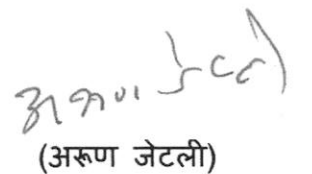 अरूण जेटली
(अरूण जेटली)